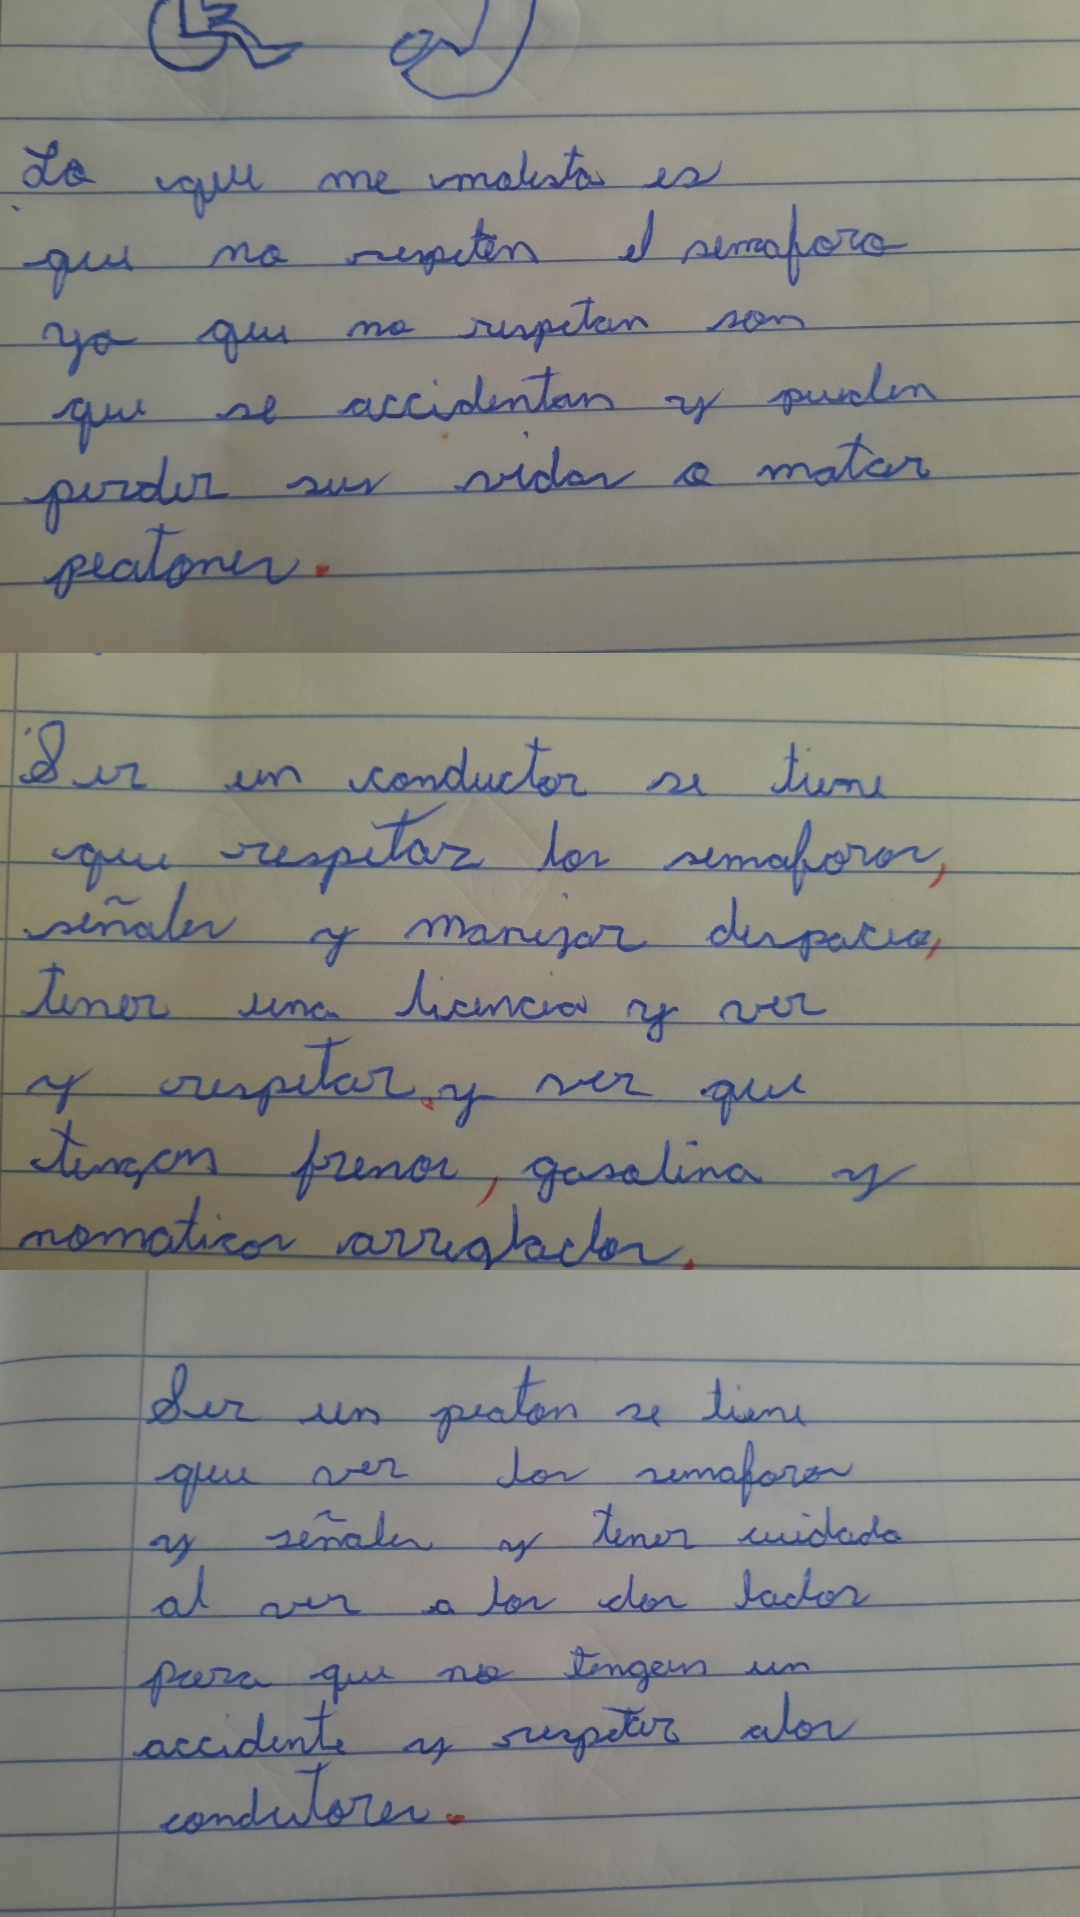 Lo que me molesta es
que no respeten el semaforo
ya que no respetan son
que se accidentan y pueden
perder sus vidas o matar
peatones.
Ser un conductor se tiene
que respetar los semaforos,
señales y manejar despacio,
tener una licencia y ver
y respetar. y ver que
tengan frenos, gasolina y
nomaticos arreglados.
Ser un peaton se tiene
que ver los semaforos
y señales y tener cuidado
al ver a los dos lados
para que no tengan un
accidente y respetar alos
condutores.